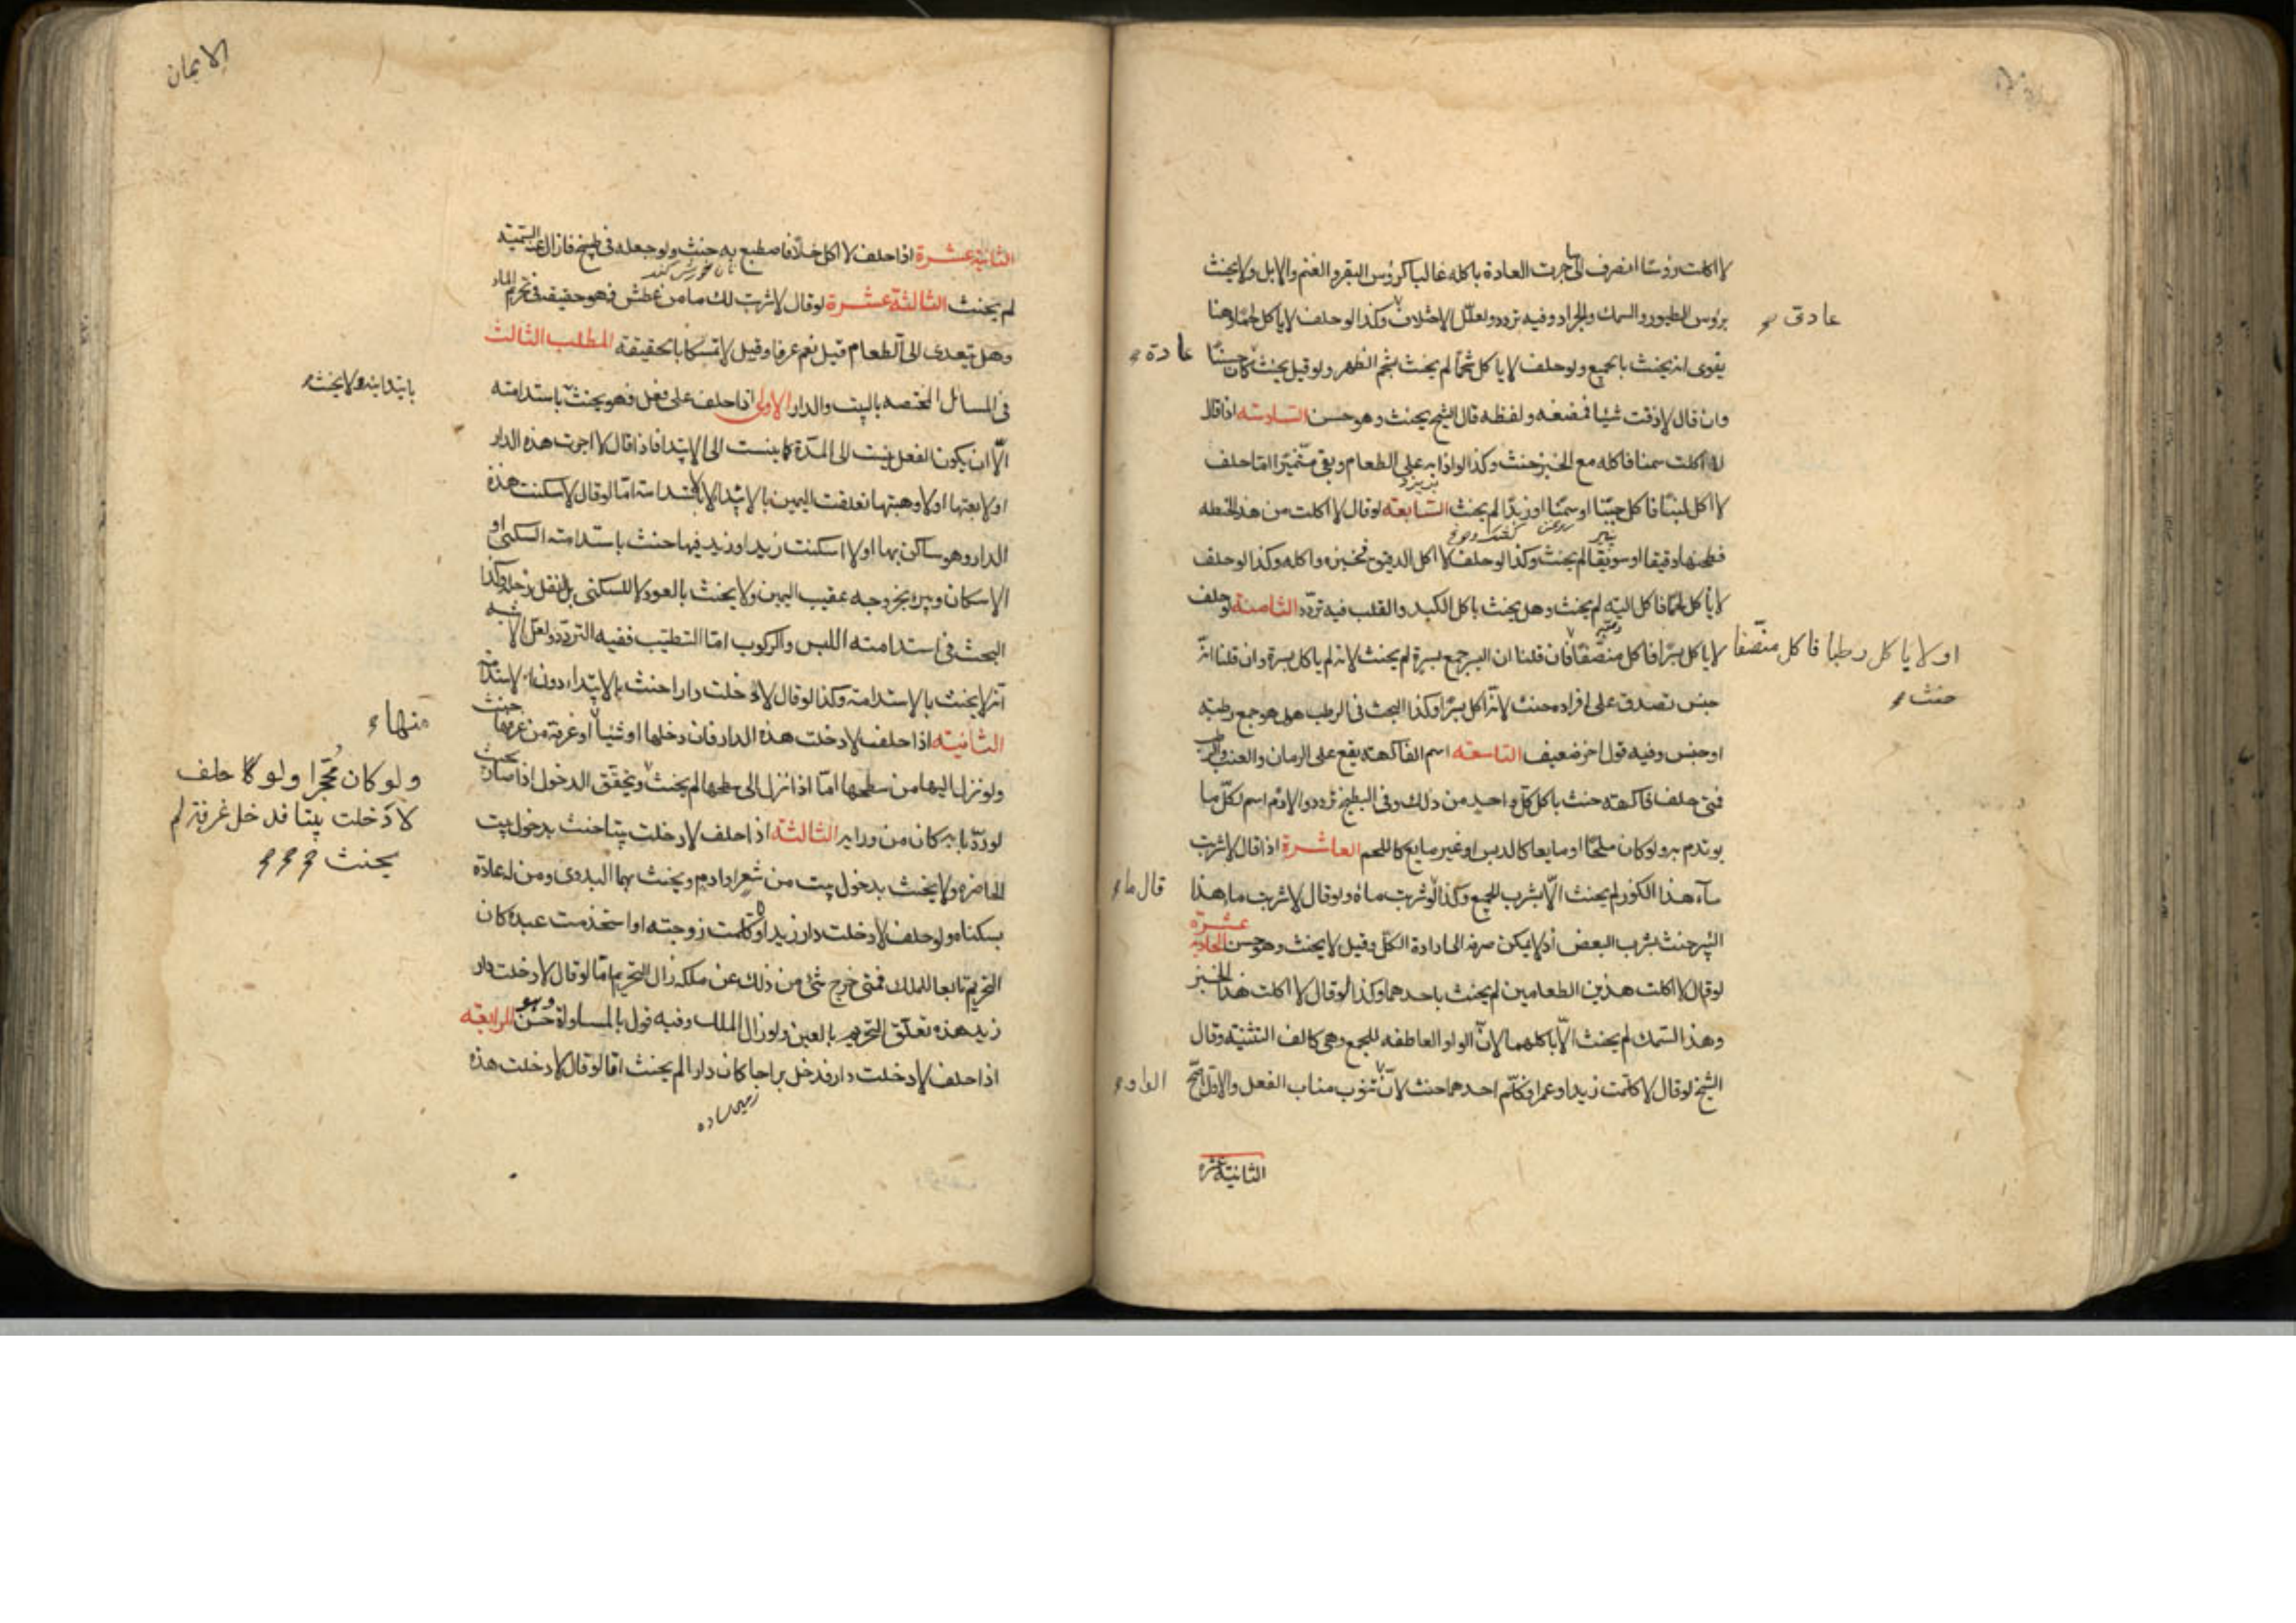 لا اكلت رؤسًا انصرف الى ما جرت العادة باكله غالبا كرؤس البقر والغنم والابل ولا يحنث
برؤس الطيور والسمك والجراد وفيه تردد ولعل الاختلاف وكذا لو حلف لا ياكل لحمًا وهنا
عادى
يقوى انه يحنث بالجميع ولو حلف لا ياكل شحمًا لم يحنث بشحم الظهر ولو قيل يحنث كان حسنًا
عادة
وان قال لا ذقت شيئا فمضغه ولفظه قال الشيخ يحنث وهو حسن السادسة اذا قال
لا اكلت سمنا فاكله مع الخبز حنث وكذا لو اذابه على الطعام وبقى متميزا اما لو حلف
لا اكل لبنًا فاكل جبنًا او سمنًا او زبدًا لم يحنث السابعة لو قال لا اكلت من هذه الحنطه
پنير روغن
فطحنها دقيقا او سويقا لم يحنث وكذا لو حلف لا اكل الدقيق فخبزه واكله وكذا لو حلف
لا ياكل لحمًا فاكل اليه لم يحنث وهل يحنث باكل الكبد والقلب فيه تردد الثامنة لو حلف
لا ياكل بسرًا فاكل منصّفًا فان قلنا ان البسر جمع بسرة لم يحنث لانه لم ياكل بسرة وان قلنا انه
او لا ياكل رطبا فاكل منصّفا
حنث
جنس تصدق على افراده حنث لانه اكل بسرًا وكذا البحث فى الرطب هل هو جمع رطبه
او جنس وفيه قول اخر ضعيف التاسعه اسم الفاكهة يقع على الرمان والعنب والرطب
فمتى حلف فاكهة حنث باكل كل واحد من ذلك وفى البطيخ تردد والادم اسم لكل ما
يوتدم به ولو كان ملحًا او مايعا كالدبس او غير مايع كاللحم العاشرة اذا قال لا شربت
ماء هذا الكوز لم يحنث الا بشرب الجميع وكذا لو شرب ماءه ولو قال لا شربت ماء هذا
قال ما
البير حنث بشرب البعض اذ لا يمكن صرفه الى ارادة الكل وقيل لا يحنث وهو حسن الحادية عشرة
لو قال لا اكلت هذين الطعامين لم يحنث باحدهما وكذا لو قال لا اكلت هذا الخبز
وهذا السمك لم يحنث الا باكلهما لان الواو العاطفه للجمع وهى كالف التثنية وقال
الشيخ لو قال لا كلمت زيدا وعمرا فكلم احدهما حنث لان تنوب مناب الفعل والاول اصح
الواو
الثانية عشره
الايمان
الثانية عشرة اذا حلف لا اكل خلًا فاصطبغ به حنث ولو جعله فى طبيخ فازال عنه التسمية
نان خورش كند
لم يحنث الثالثة عشرة لو قال لا شربت لك ماء من عطش فهو حقيقة فى تحريم الماء
وهل يتعدى الى الطعام قيل نعم عرفا وقيل لا تمسكا بالحقيقة المطلب الثالث
فى المسائل المختصه بالبيت والدار الاولى اذا حلف على فعل فهو يحنث باستدامته
بابتدائه ولا يحنث
الا ان يكون الفعل ينسب الى المدة كما ينسب الى الابتدا فاذا قال لا اجرت هذه الدار
او لا بعتها او لا وهبتها تعلقت اليمين بالابتدا لا بالاستدامة اما لو قال لا سكنت هذه
الدار وهو ساكن بها او لا اسكنت زيدا وزيد فيها حنث باستدامة السكنى او
الاسكان ويبر بخروجه عقيب اليمين ولا يحنث بالعود لا للسكنى بل لنقل رحله وكذا
البحث فى استدامة اللبس والركوب اما التطيب ففيه التردد ولعل الاشبه
انه لا يحنث بالاستدامة وكذا لو قال لا دخلت دارا حنث بالابتداء دون الاستدامة
الثانية اذا حلف لا دخلت هذه الدار فان دخلها او شيئًا او غرفة من غرفها حنث
منها
ولو نزل اليها من سطحها اما اذا نزل الى سطحها لم يحنث ويتحقق الدخول اذا صار بحيث
ولو كان محجّرا ولو حلف
لا دخلت بيتا فدخل غرفة لم
يحنث
لو ردّ بابه كان من ورايه الثالثة اذا حلف لا دخلت بيتا حنث بدخول بيت
الحاضرة ولا يحنث بدخول بيت من شعر او ادم ويحنث بهما البدوى ومن له عادة
بسكناه ولو حلف لا دخلت دار زيد او لا كلمت زوجته او استخدمت عبده كان
التحريم تابعا للملك فمتى خرج شئ من ذلك عن ملكه زال التحريم اما لو قال لا دخلت دار
زيد هذه تعلق التحريم بالعين ولو زال الملك وفيه قول بالمساواة وهو حسن الرابعة
اذا حلف لا دخلت دارا فدخل براحا كان دارا لم يحنث اما لو قال لا دخلت هذه
زمين ساده